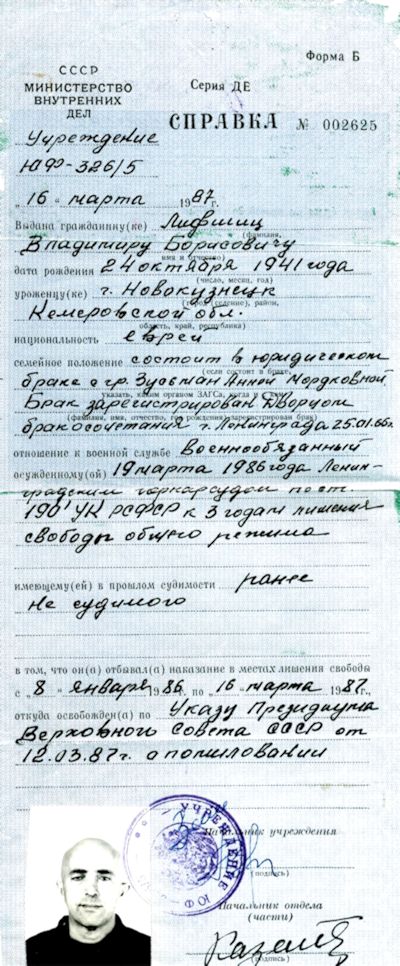 Форма Б
СССР
МИНИСТЕРСТВО
ВНУТРЕННИХ
ДЕЛ
Серия ДЕ
СПРАВКА № 002625
Учреждение
ЮФ-326/5
„16" марта 1987г.
Выдана гражданину(ке) Лифшиц
(фамилия,
Владимиру Борисовичу
имя и отчество)
дата рождения 24 октября 1941 года
(число, месяц, год)
уроженцу(ке) г. Новокузнецк
(город (селение), район,
Кемеровской обл.
область, край, республика)
национальность еврей
семейное положение состоит в юридическом
(если состоит в браке,
браке с гр. Зусьман Анной Мордковной.
указать, каким органом ЗАГСа, когда и с кем
Брак зарегистрирован Дворцом
(фамилия, имя, отчество, год рождения) зарегистрирован брак)
бракосочетания г. Ленинграда 25.01.66г.
отношение к военной службе Военнообязанный
осужденному(ой) 19 марта 1986 года Ленин-
градским горнарсудом по ст.
190' УК РСФСР к 3 годам лишения
свободы общего режима
имеющему(ей) в прошлом судимости ранее
не судимого
в том, что он(а) отбывал(а) наказание в местах лишения свободы
с „8" января 1986 г. по „16" марта 1987 г.,
откуда освобожден(а) по Указу Президиума
Верховного Совета СССР от
12.03.87г. о помиловании
Начальник учреждения
(подпись)
УЧРЕЖДЕНИЕ ЮФ
Начальник отдела
(части)
(подпись)